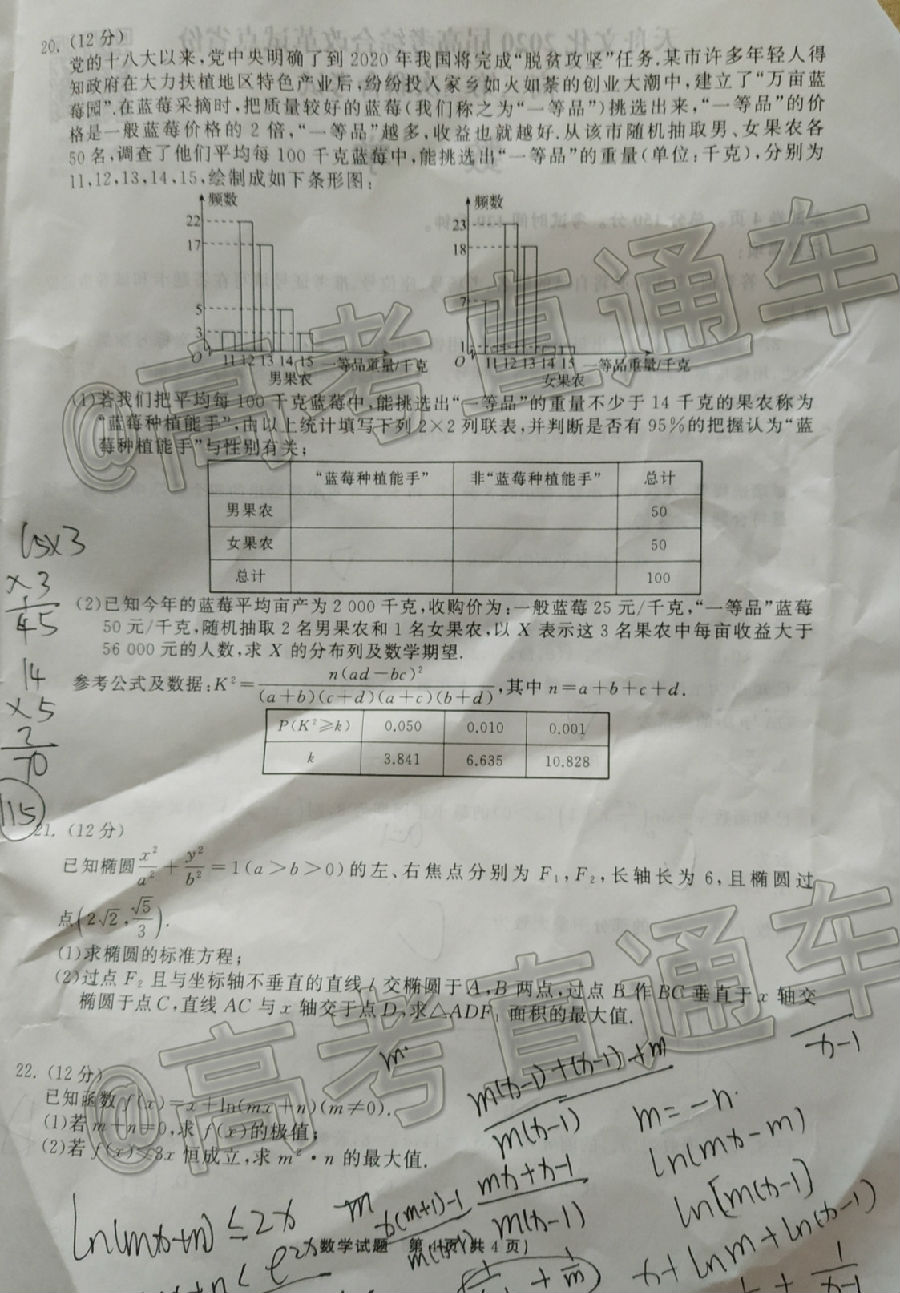 20. (12分)
党的十八大以来,党中央明确了到2020年我国将完成“脱贫攻坚”任务.某市许多年轻人得
知政府在大力扶植地区特色产业后,纷纷投入家乡如火如荼的创业大潮中,建立了“万亩蓝
莓园”.在蓝莓采摘时,把质量较好的蓝莓(我们称之为“一等品”)挑选出来,“一等品”的价
格是一般蓝莓价格的2倍,“一等品”越多,收益也就越好.从该市随机抽取男、女果农各
50名,调查了他们平均每100千克蓝莓中,能挑选出“一等品”的重量(单位:千克),分别为
11,12,13,14,15,绘制成如下条形图:
频数
22
17
5
3
O 11 12 13 14 15 一等品重量/千克
男果农
频数
23
18
7
1
O 11 12 13 14 15 一等品重量/千克
女果农
(1)若我们把平均每100千克蓝莓中,能挑选出“一等品”的重量不少于14千克的果农称为
“蓝莓种植能手”,由以上统计填写下列2×2列联表,并判断是否有95%的把握认为“蓝
莓种植能手”与性别有关;
“蓝莓种植能手” 非“蓝莓种植能手” 总计
男果农 50
女果农 50
总计 100
(2)已知今年的蓝莓平均亩产为2 000千克,收购价为:一般蓝莓25元/千克,“一等品”蓝莓
50元/千克,随机抽取2名男果农和1名女果农,以X表示这3名果农中每亩收益大于
56 000元的人数,求X的分布列及数学期望.
参考公式及数据:K²=n(ad-bc)²/((a+b)(c+d)(a+c)(b+d)),其中n=a+b+c+d.
P(K²≥k) 0.050 0.010 0.001
k 3.841 6.635 10.828
15×3
×3
45
14
×5
2
70
115
21. (12分)
已知椭圆x²/a²+y²/b²=1(a>b>0)的左、右焦点分别为F₁,F₂,长轴长为6,且椭圆过
点(2√2,√5/3).
(1)求椭圆的标准方程;
(2)过点F₂且与坐标轴不垂直的直线l交椭圆于A,B两点,过点B作BC垂直于x轴交
椭圆于点C,直线AC与x轴交于点D,求△ADF₁面积的最大值.
22. (12分)
已知函数f(x)=x+ln(mx+n)(m≠0).
(1)若m+n=0,求f(x)的极值;
(2)若f(x)≤3x恒成立,求m²·n的最大值.
m
x-1
m(x-1)+(x-1)+m
m(x-1)
m=-n
mx+x-1
m(x-1)
ln(mx-m)
ln[m(x-1)]
x+lnm+ln(x-1)
ln(mx+n)≤2x
m
x(m+1)-1
数学试题 第4页(共4页)
@高考直通车
@高考直通车